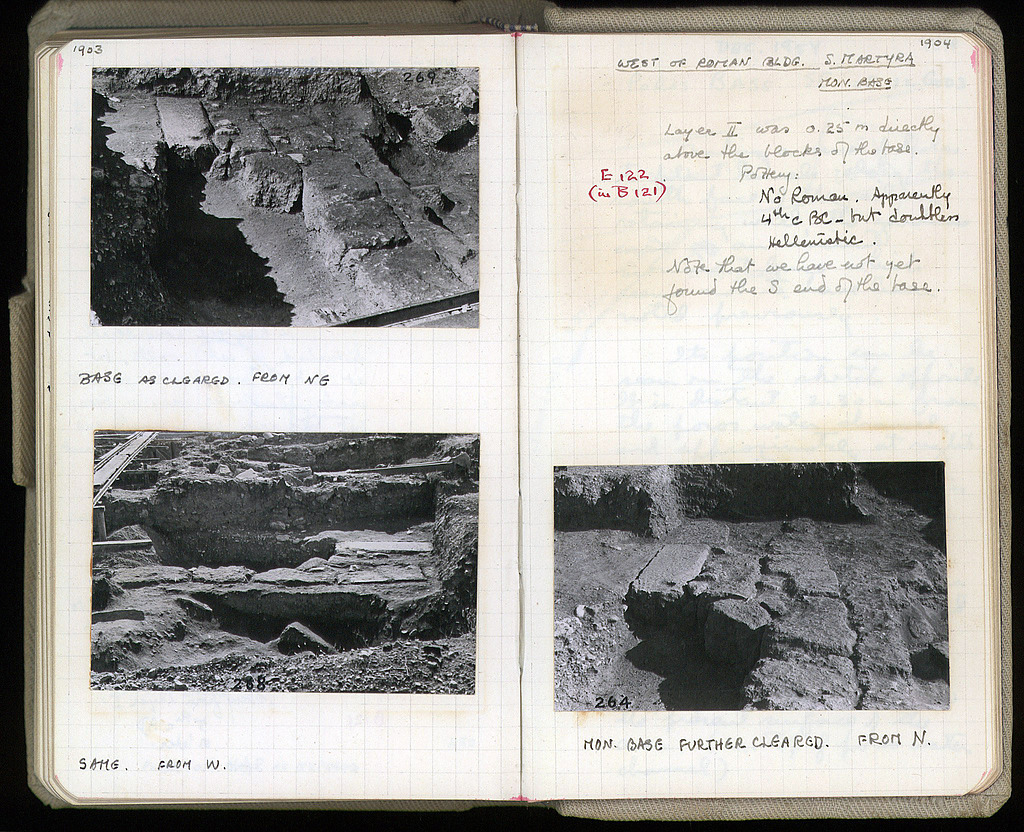 1903
269
BASE AS CLEARED. FROM NE
288
SAME. FROM W.
1904
WEST OF ROMAN BLDG. S. MARTYRA
MON. BASE
Layer II was 0.25 m directly
above the blocks of the base.
Pottery:
E 122
(in B 121)
No Roman. Apparently
4th c BC - but doubtless
Hellenistic.
Note that we have not yet
found the S end of the base.
264
MON. BASE FURTHER CLEARED. FROM N.